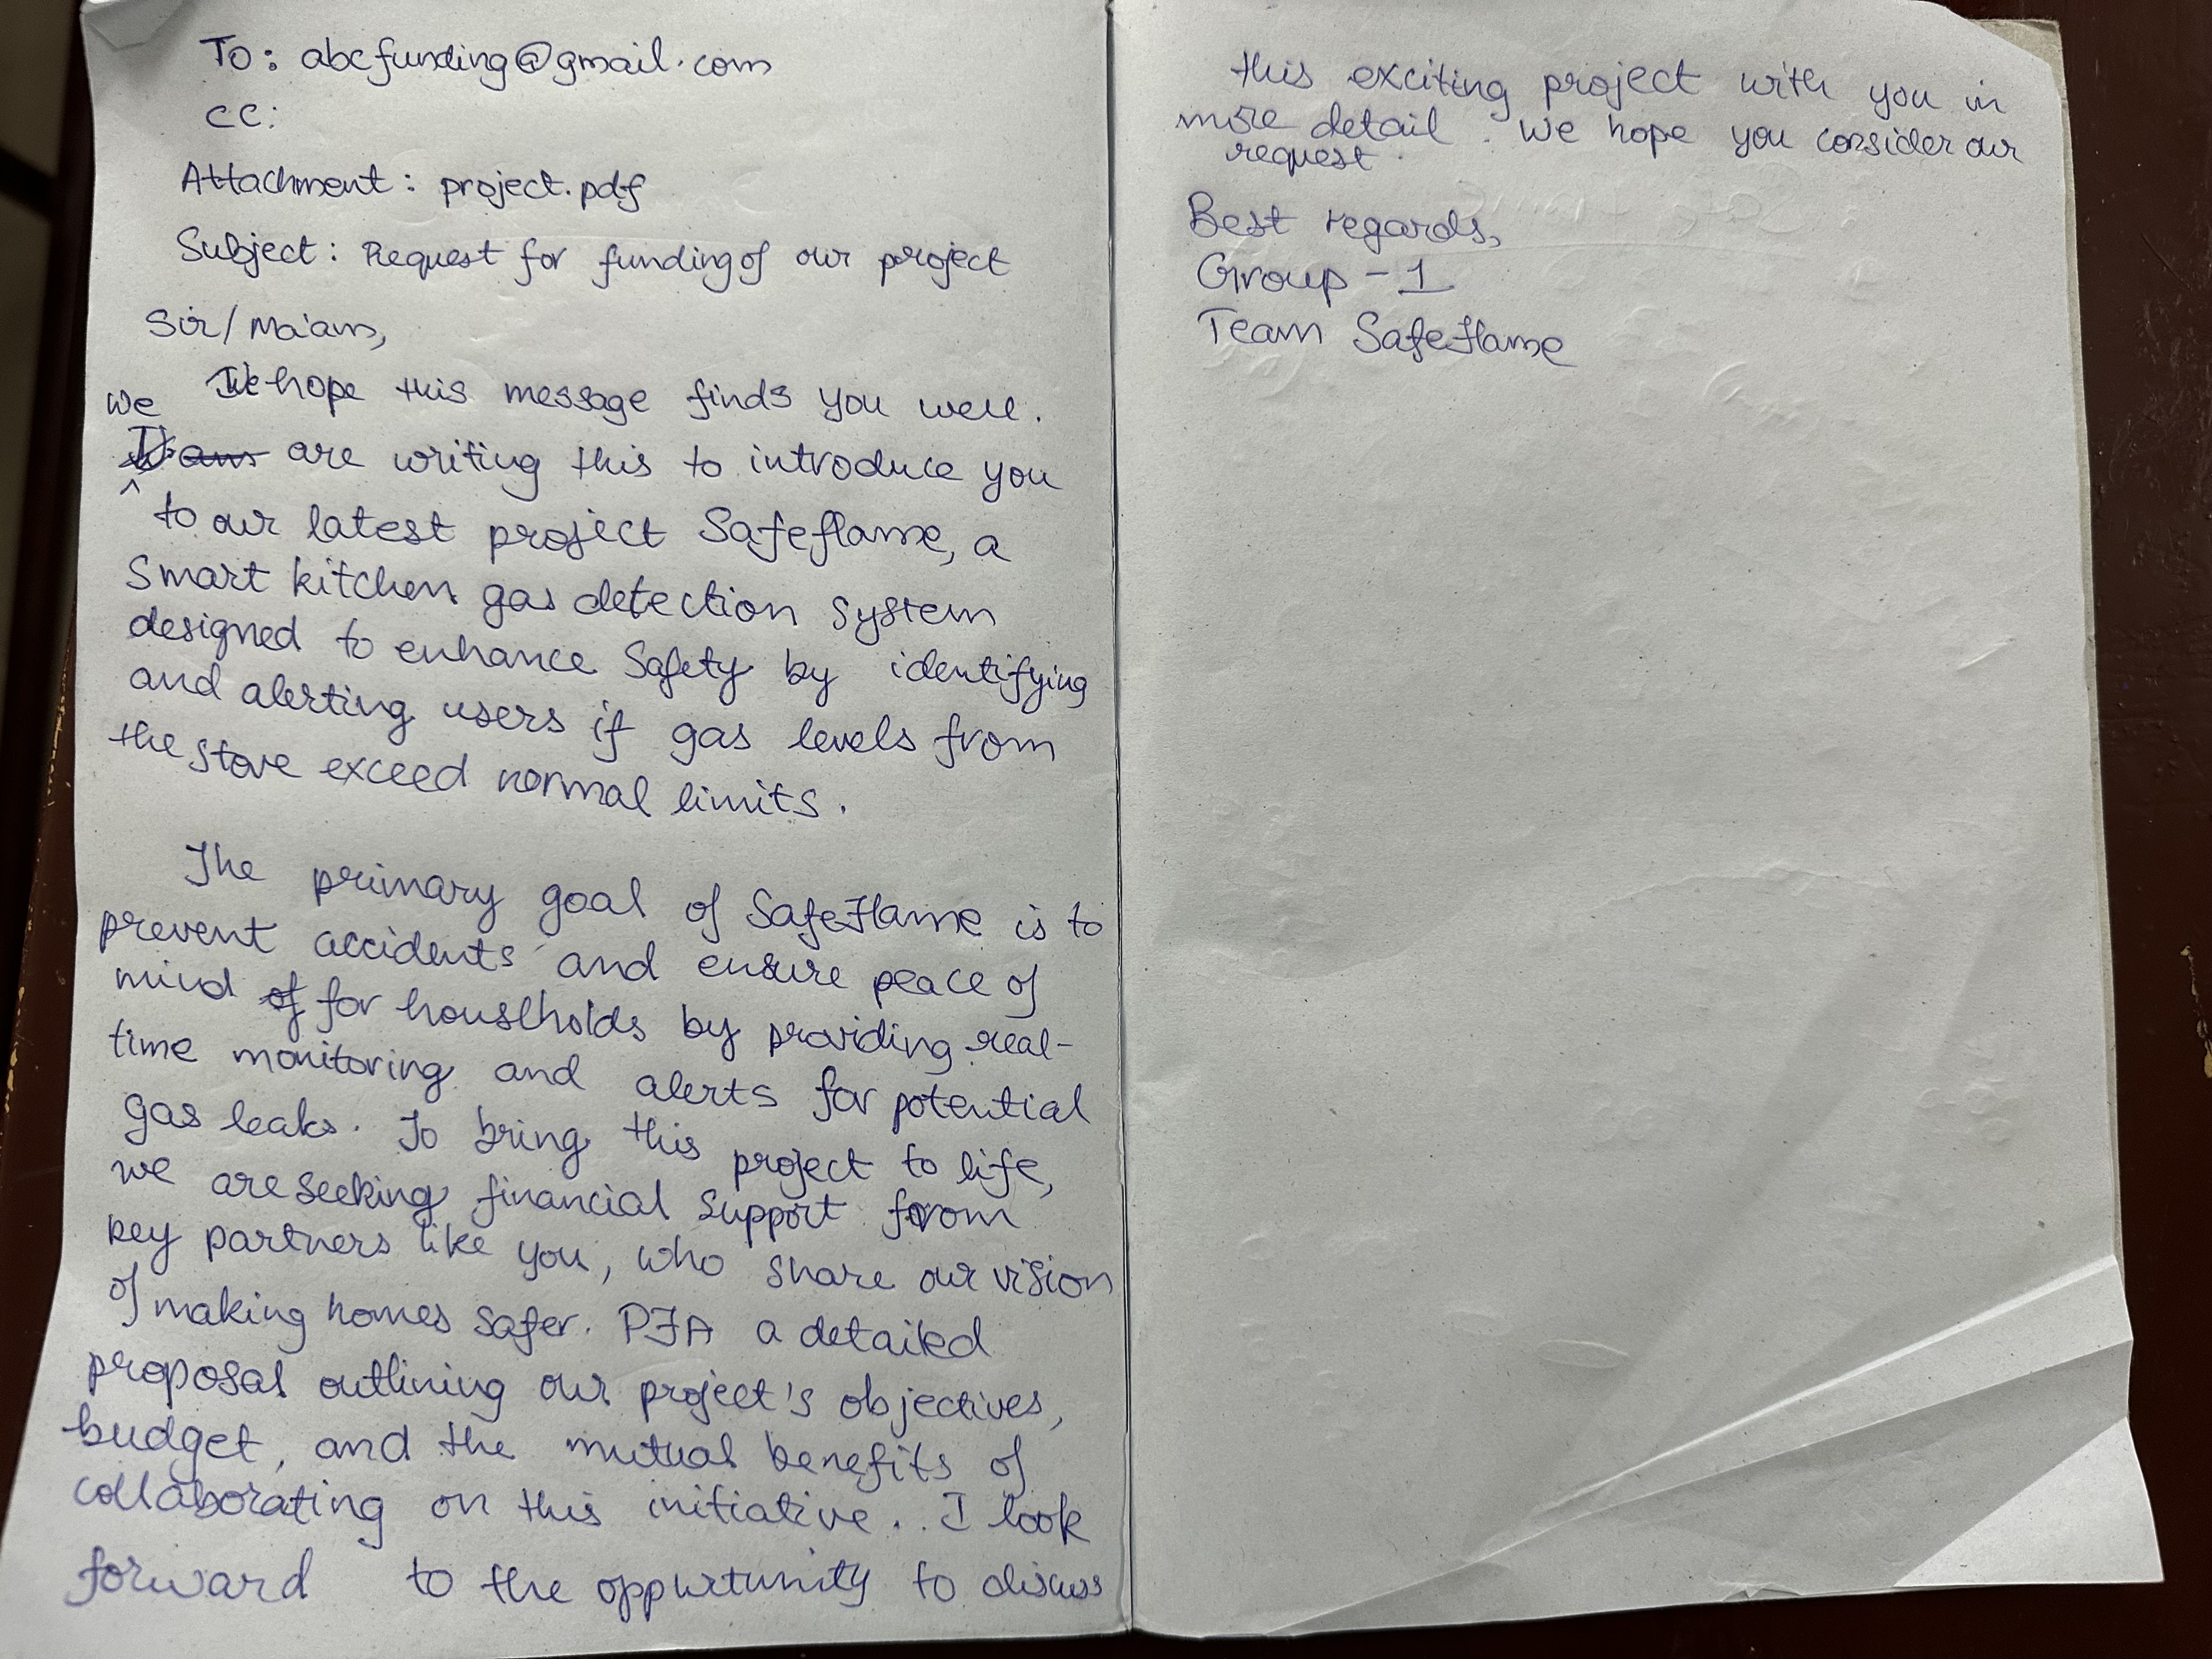 To: abcfunding@gmail.com
CC:
Attachment: project.pdf
Subject: Request for funding of our project
Sir/Ma'am,
I hope this message finds you well.
We are writing this to introduce you
to our latest project Safeflame, a
Smart kitchen gas detection system
designed to enhance Safety by identifying
and alerting users if gas levels from
the stove exceed normal limits.
The primary goal of SafeFlame is to
prevent accidents, and ensure peace of
mind for households by providing real-
time monitoring and alerts for potential
gas leaks. To bring this project to life,
we are seeking financial support from
key partners like you, who share our vision
of making homes safer. PFA a detailed
proposal outlining our project's objectives,
budget, and the mutual benefits of
collaborating on this initiative.. I look
forward to the opportunity to discuss
this exciting project with you in
more detail. We hope you consider our
request.
Best regards,
Group - 1
Team SafeFlame